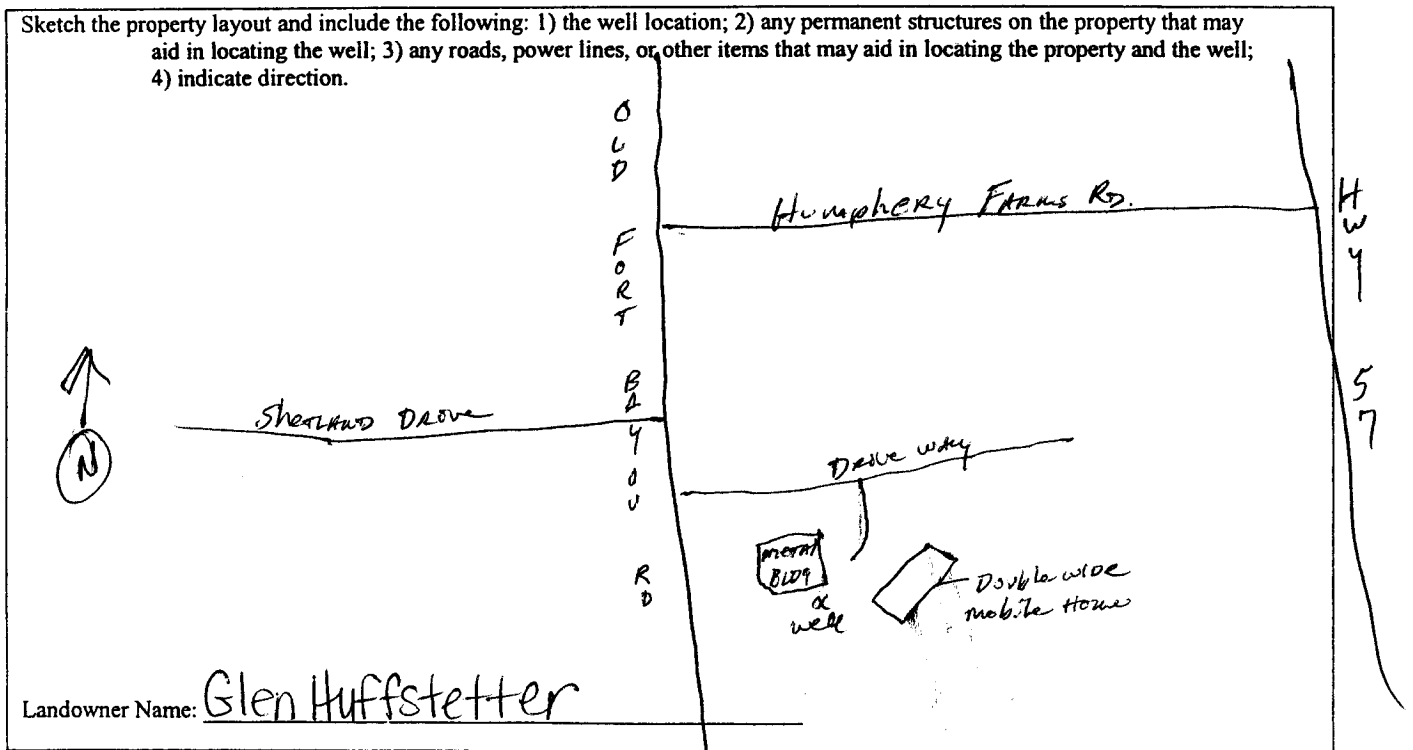 Sketch the property layout and include the following: 1) the well location; 2) any permanent structures on the property that may
aid in locating the well; 3) any roads, power lines, or other items that may aid in locating the property and the well;
4) indicate direction.
OLD FORT BAYOU RD
Humphery Farms Rd.
HWY 57
N
Shetland Drove
Drive way
metal
BLDG
well
Double wide
mobile Home
Landowner Name: Glen Huffstetter